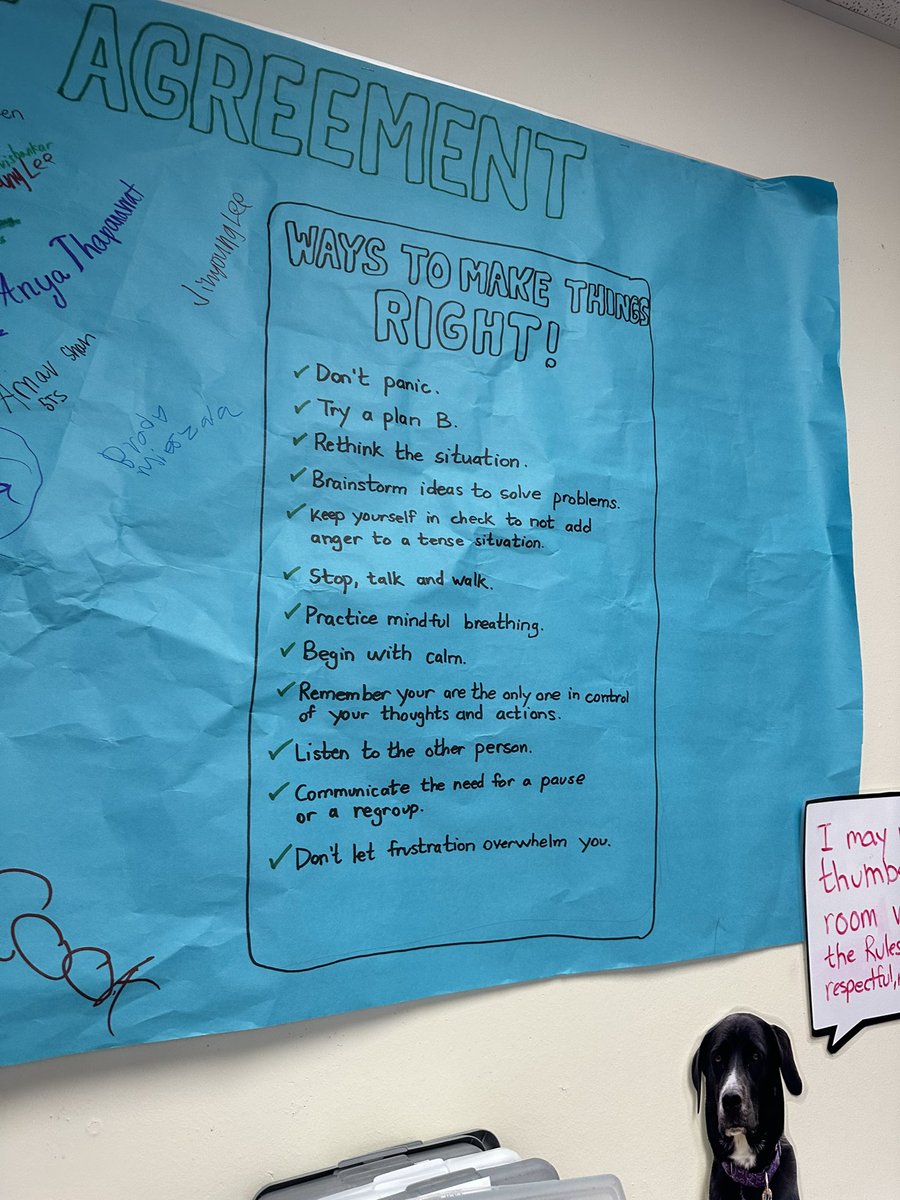 AGREEMENT
Lee
Anya Thapanawat
Jinyoung Lee
Amar Shah
Brady
WAYS TO MAKE THINGS
RIGHT!
✓ Don't panic.
✓ Try a plan B.
✓ Rethink the situation.
✓ Brainstorm ideas to solve problems.
✓ Keep yourself in check to not add
anger to a tense situation.
✓ Stop, talk and walk.
✓ Practice mindful breathing.
✓ Begin with calm.
✓ Remember your are the only one in control
of your thoughts and actions.
✓ Listen to the other person.
✓ Communicate the need for a pause
or a regroup.
✓ Don't let frustration overwhelm you.
I may
room
the Rules
respectful,